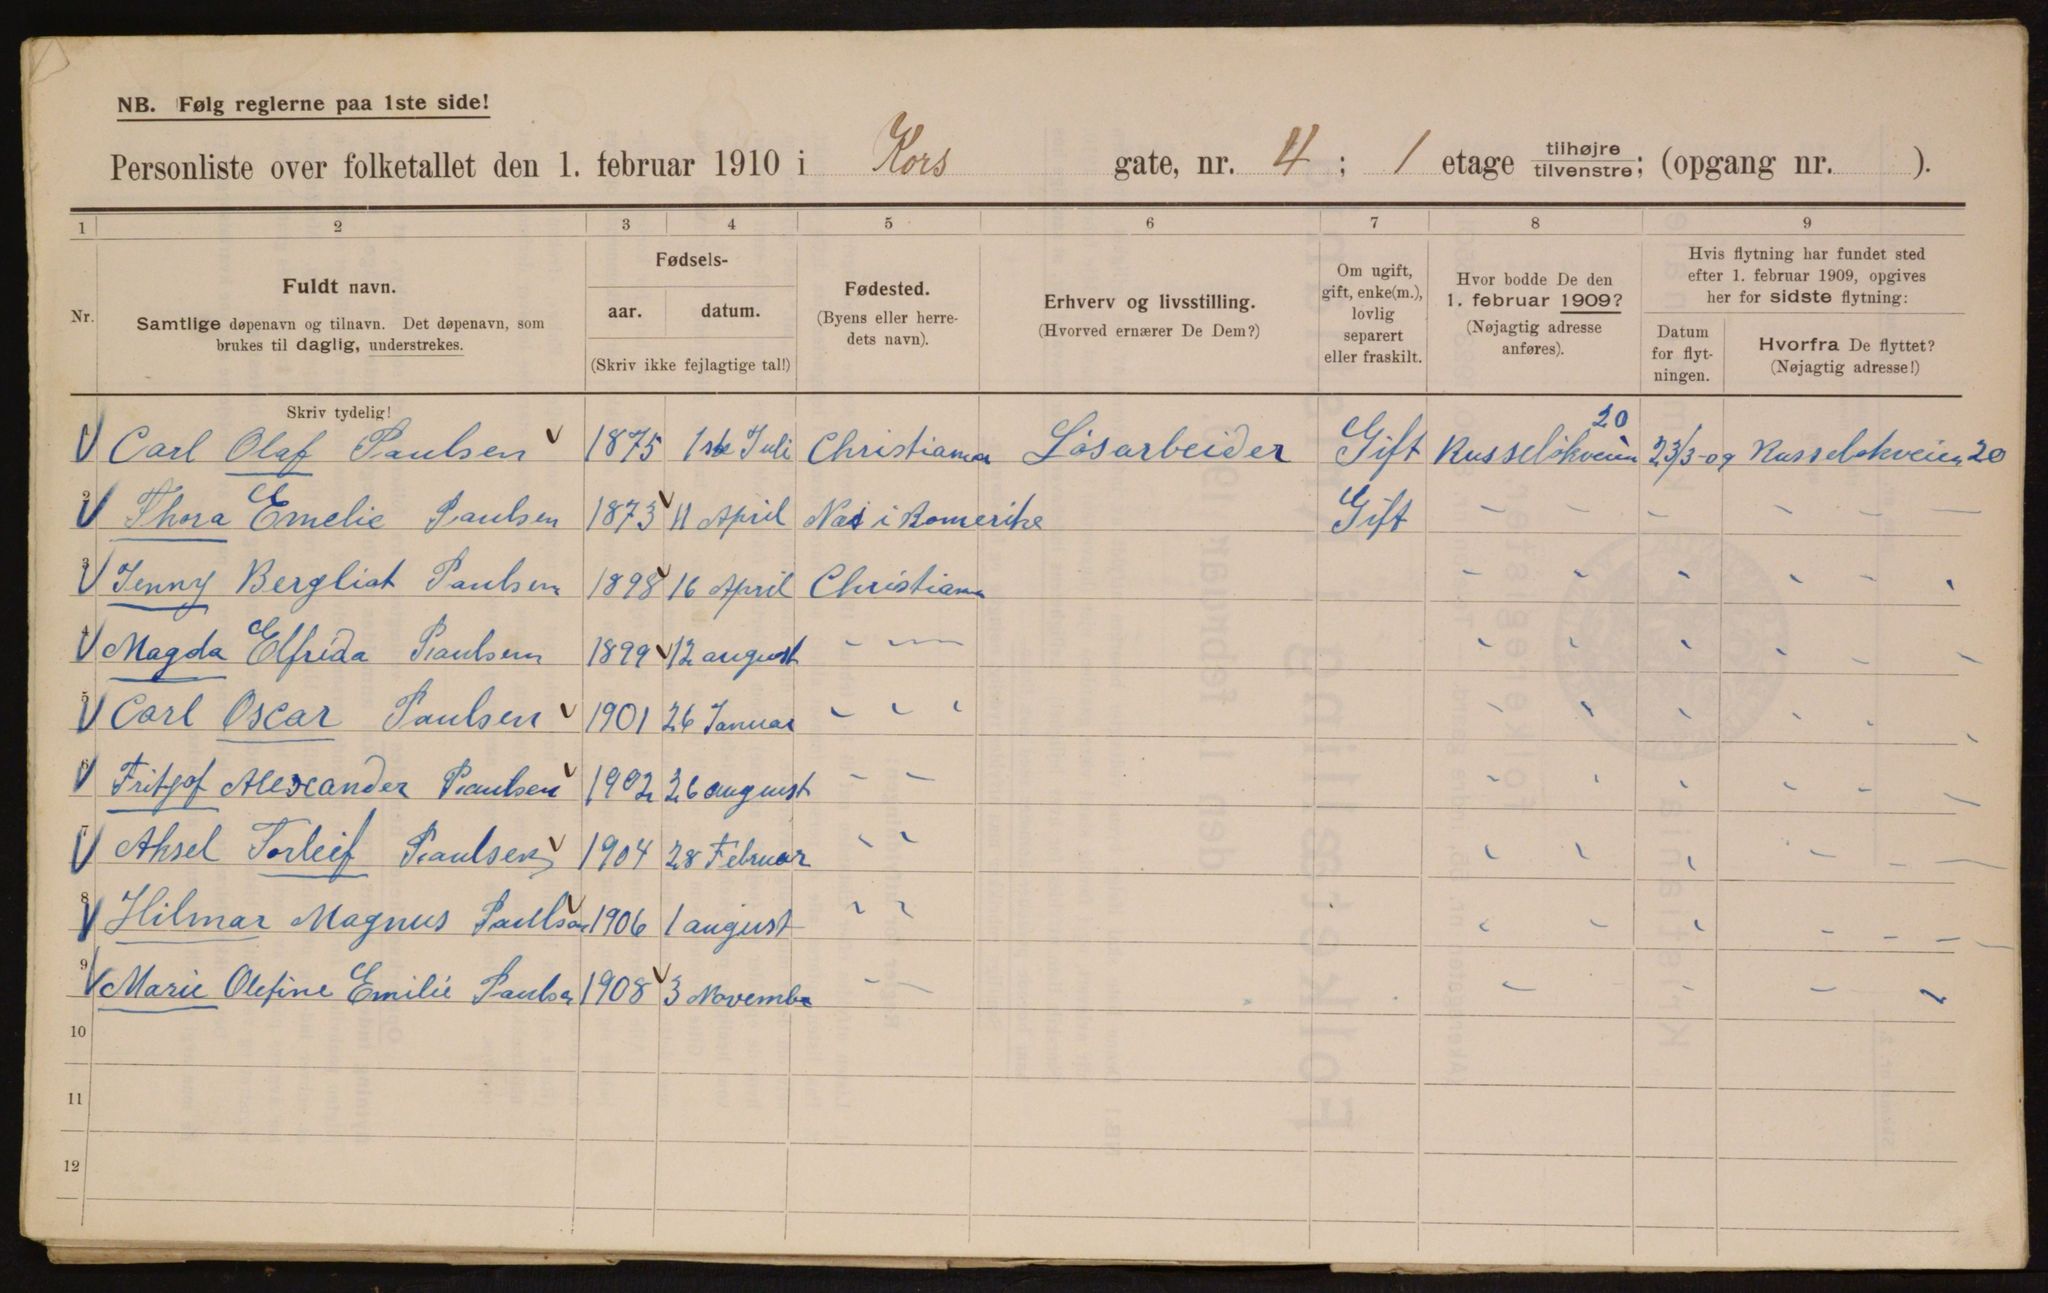 NB. Følg reglerne paa 1ste side!
Personliste over folketallet den 1. februar 1910 i Kors gate, nr. 4 ; 1 etage tilhøjre tilvenstre; (opgang nr. ).
1 2 3 4 5 6 7 8 9
Nr. Fuldt navn. Samtlige døpenavn og tilnavn. Det døpenavn, som brukes til daglig, understrekes.
Fødsels-
aar. datum.
(Skriv ikke fejlagtige tal!)
Fødested. (Byens eller herredets navn).
Erhverv og livsstilling.
(Hvorved ernærer De Dem?)
Om ugift, gift, enke(m.), lovlig separert eller fraskilt.
Hvor bodde De den 1. februar 1909? (Nøjagtig adresse anføres).
Hvis flytning har fundet sted efter 1. februar 1909, opgives her for sidste flytning:
Datum for flytningen.
Hvorfra De flyttet? (Nøjagtig adresse!)
Skriv tydelig!
1 Carl Olaf Paulsen 1875 1ste Juli Christiania Løsarbeider Gift Russeløkveien 20 23/3-09 Russeløkveien 20
2 Thora Emelie Paulsen 1873 11 April Nes i Romerike Gift - - - - - -
3 Jenny Bergliot Paulsen 1898 16 April Christiania
4 Magda Elfrida Paulsen 1899 12 august - -
5 Carl Oscar Paulsen 1901 26 Januar - - -
6 Fritjof Alexander Paulsen 1902 26 august - -
7 Aksel Torleif Paulsen 1904 28 Februar - -
8 Hilmar Magnus Paulsen 1906 1 august - -
9 Marie Olefine Emilie Paulsen 1908 3 November - -
10
11
12